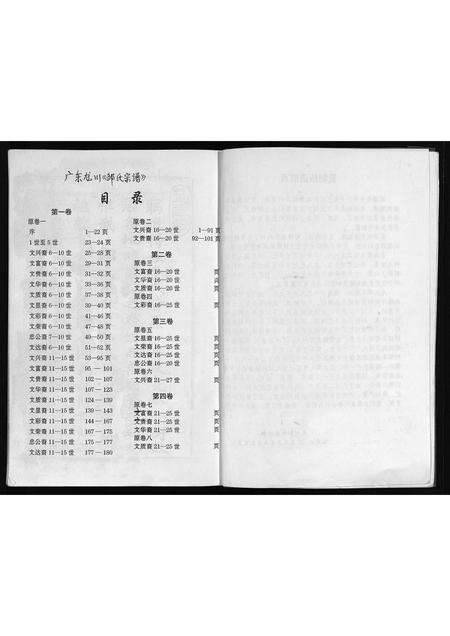 广东龙川《邹氏宗谱》
目 录
第一卷
原卷一
序 1—22 页
1 世至 5 世 23—24 页
文兴裔 6—10 世 25—28 页
文富裔 6—10 世 29—31 页
文贵裔 6—10 世 31—32 页
文华裔 6—10 世 33—36 页
文质裔 6—10 世 37—38 页
文显裔 6—10 世 39—40 页
文彩裔 6—10 世 41—46 页
文荣裔 6—10 世 47—48 页
忠公裔 7—10 世 49—50 页
文达裔 6—10 世 51—52 页
文兴裔 11—15 世 53—95 页
文富裔 11—15 世 95 — 101
文贵裔 11—15 世 102 — 107
文华裔 11—15 世 107 — 123
文质裔 11—15 世 124 — 139
文显裔 11—15 世 139 — 143
文彩裔 11—15 世 144 — 167
文荣裔 11—15 世 167 — 175
忠公裔 11—15 世 175 — 177
文达裔 11—15 世 177 — 180
原卷二
文兴裔 16—20 世 1—91 页
文贵裔 16—20 世 92—101 页
第二卷
原卷三
文富裔 16—20 世 页
文华裔 16—20 世 页
文质裔 16—20 世 页
原卷四
文彩裔 16—25 世 页
第三卷
原卷五
文显裔 16—25 世 页
文荣裔 16—25 世 页
文达裔 16—25 世 页
忠公裔 16—20 世 页
原卷六
文兴裔 21—27 世 页
第四卷
原卷七
文富裔 21—25 世 页
文贵裔 21—25 世 页
文华裔 21—25 世 页
原卷八
文质裔 21—25 世 页